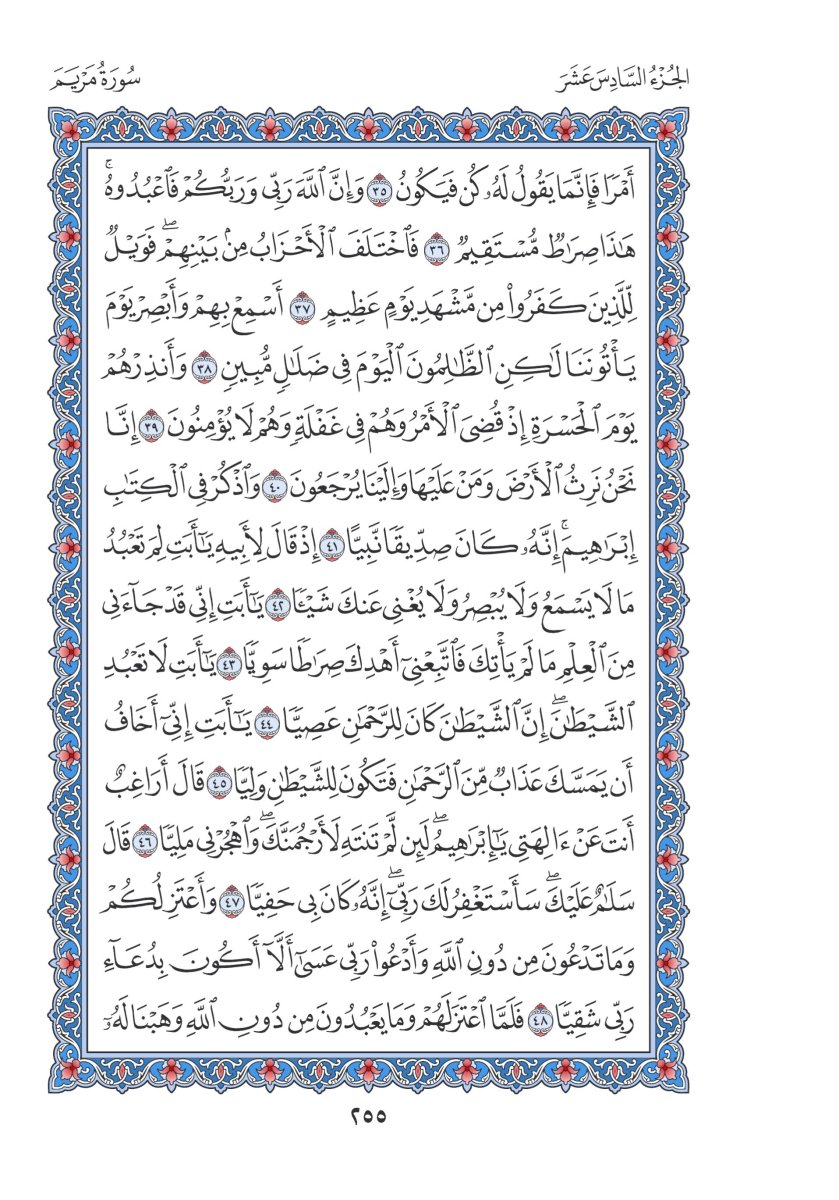 الجُزْءُ السَّادِسَ عَشَرَ
سُورَةُ مَرْيَمَ
أَمْرٗا فَإِنَّمَا يَقُولُ لَهُۥ كُن فَيَكُونُ ٣٥ وَإِنَّ ٱللَّهَ رَبِّي وَرَبُّكُمۡ فَٱعۡبُدُوهُۚ
هَٰذَا صِرَٰطٞ مُّسۡتَقِيمٞ ٣٦ فَٱخۡتَلَفَ ٱلۡأَحۡزَابُ مِنۢ بَيۡنِهِمۡۖ فَوَيۡلٞ
لِّلَّذِينَ كَفَرُواْ مِن مَّشۡهَدِ يَوۡمٍ عَظِيمٍ ٣٧ أَسۡمِعۡ بِهِمۡ وَأَبۡصِرۡ يَوۡمَ
يَأۡتُونَنَا لَٰكِنِ ٱلظَّٰلِمُونَ ٱلۡيَوۡمَ فِي ضَلَٰلٖ مُّبِينٖ ٣٨ وَأَنذِرۡهُمۡ
يَوۡمَ ٱلۡحَسۡرَةِ إِذۡ قُضِيَ ٱلۡأَمۡرُ وَهُمۡ فِي غَفۡلَةٖ وَهُمۡ لَا يُؤۡمِنُونَ ٣٩ إِنَّا
نَحۡنُ نَرِثُ ٱلۡأَرۡضَ وَمَنۡ عَلَيۡهَا وَإِلَيۡنَا يُرۡجَعُونَ ٤٠ وَٱذۡكُرۡ فِي ٱلۡكِتَٰبِ
إِبۡرَٰهِيمَۚ إِنَّهُۥ كَانَ صِدِّيقٗا نَّبِيًّا ٤١ إِذۡ قَالَ لِأَبِيهِ يَٰٓأَبَتِ لِمَ تَعۡبُدُ
مَا لَا يَسۡمَعُ وَلَا يُبۡصِرُ وَلَا يُغۡنِي عَنكَ شَيۡـٔٗا ٤٢ يَٰٓأَبَتِ إِنِّي قَدۡ جَآءَنِي
مِنَ ٱلۡعِلۡمِ مَا لَمۡ يَأۡتِكَ فَٱتَّبِعۡنِيٓ أَهۡدِكَ صِرَٰطٗا سَوِيّٗا ٤٣ يَٰٓأَبَتِ لَا تَعۡبُدِ
ٱلشَّيۡطَٰنَۖ إِنَّ ٱلشَّيۡطَٰنَ كَانَ لِلرَّحۡمَٰنِ عَصِيّٗا ٤٤ يَٰٓأَبَتِ إِنِّيٓ أَخَافُ
أَن يَمَسَّكَ عَذَابٞ مِّنَ ٱلرَّحۡمَٰنِ فَتَكُونَ لِلشَّيۡطَٰنِ وَلِيّٗا ٤٥ قَالَ أَرَاغِبٌ
أَنتَ عَنۡ ءَالِهَتِي يَٰٓإِبۡرَٰهِيمُۖ لَئِن لَّمۡ تَنتَهِ لَأَرۡجُمَنَّكَۖ وَٱهۡجُرۡنِي مَلِيّٗا ٤٦ قَالَ
سَلَٰمٌ عَلَيۡكَۖ سَأَسۡتَغۡفِرُ لَكَ رَبِّيٓۖ إِنَّهُۥ كَانَ بِي حَفِيّٗا ٤٧ وَأَعۡتَزِلُكُمۡ
وَمَا تَدۡعُونَ مِن دُونِ ٱللَّهِ وَأَدۡعُواْ رَبِّي عَسَىٰٓ أَلَّآ أَكُونَ بِدُعَآءِ
رَبِّي شَقِيّٗا ٤٨ فَلَمَّا ٱعۡتَزَلَهُمۡ وَمَا يَعۡبُدُونَ مِن دُونِ ٱللَّهِ وَهَبۡنَا لَهُۥٓ
٢٥٥